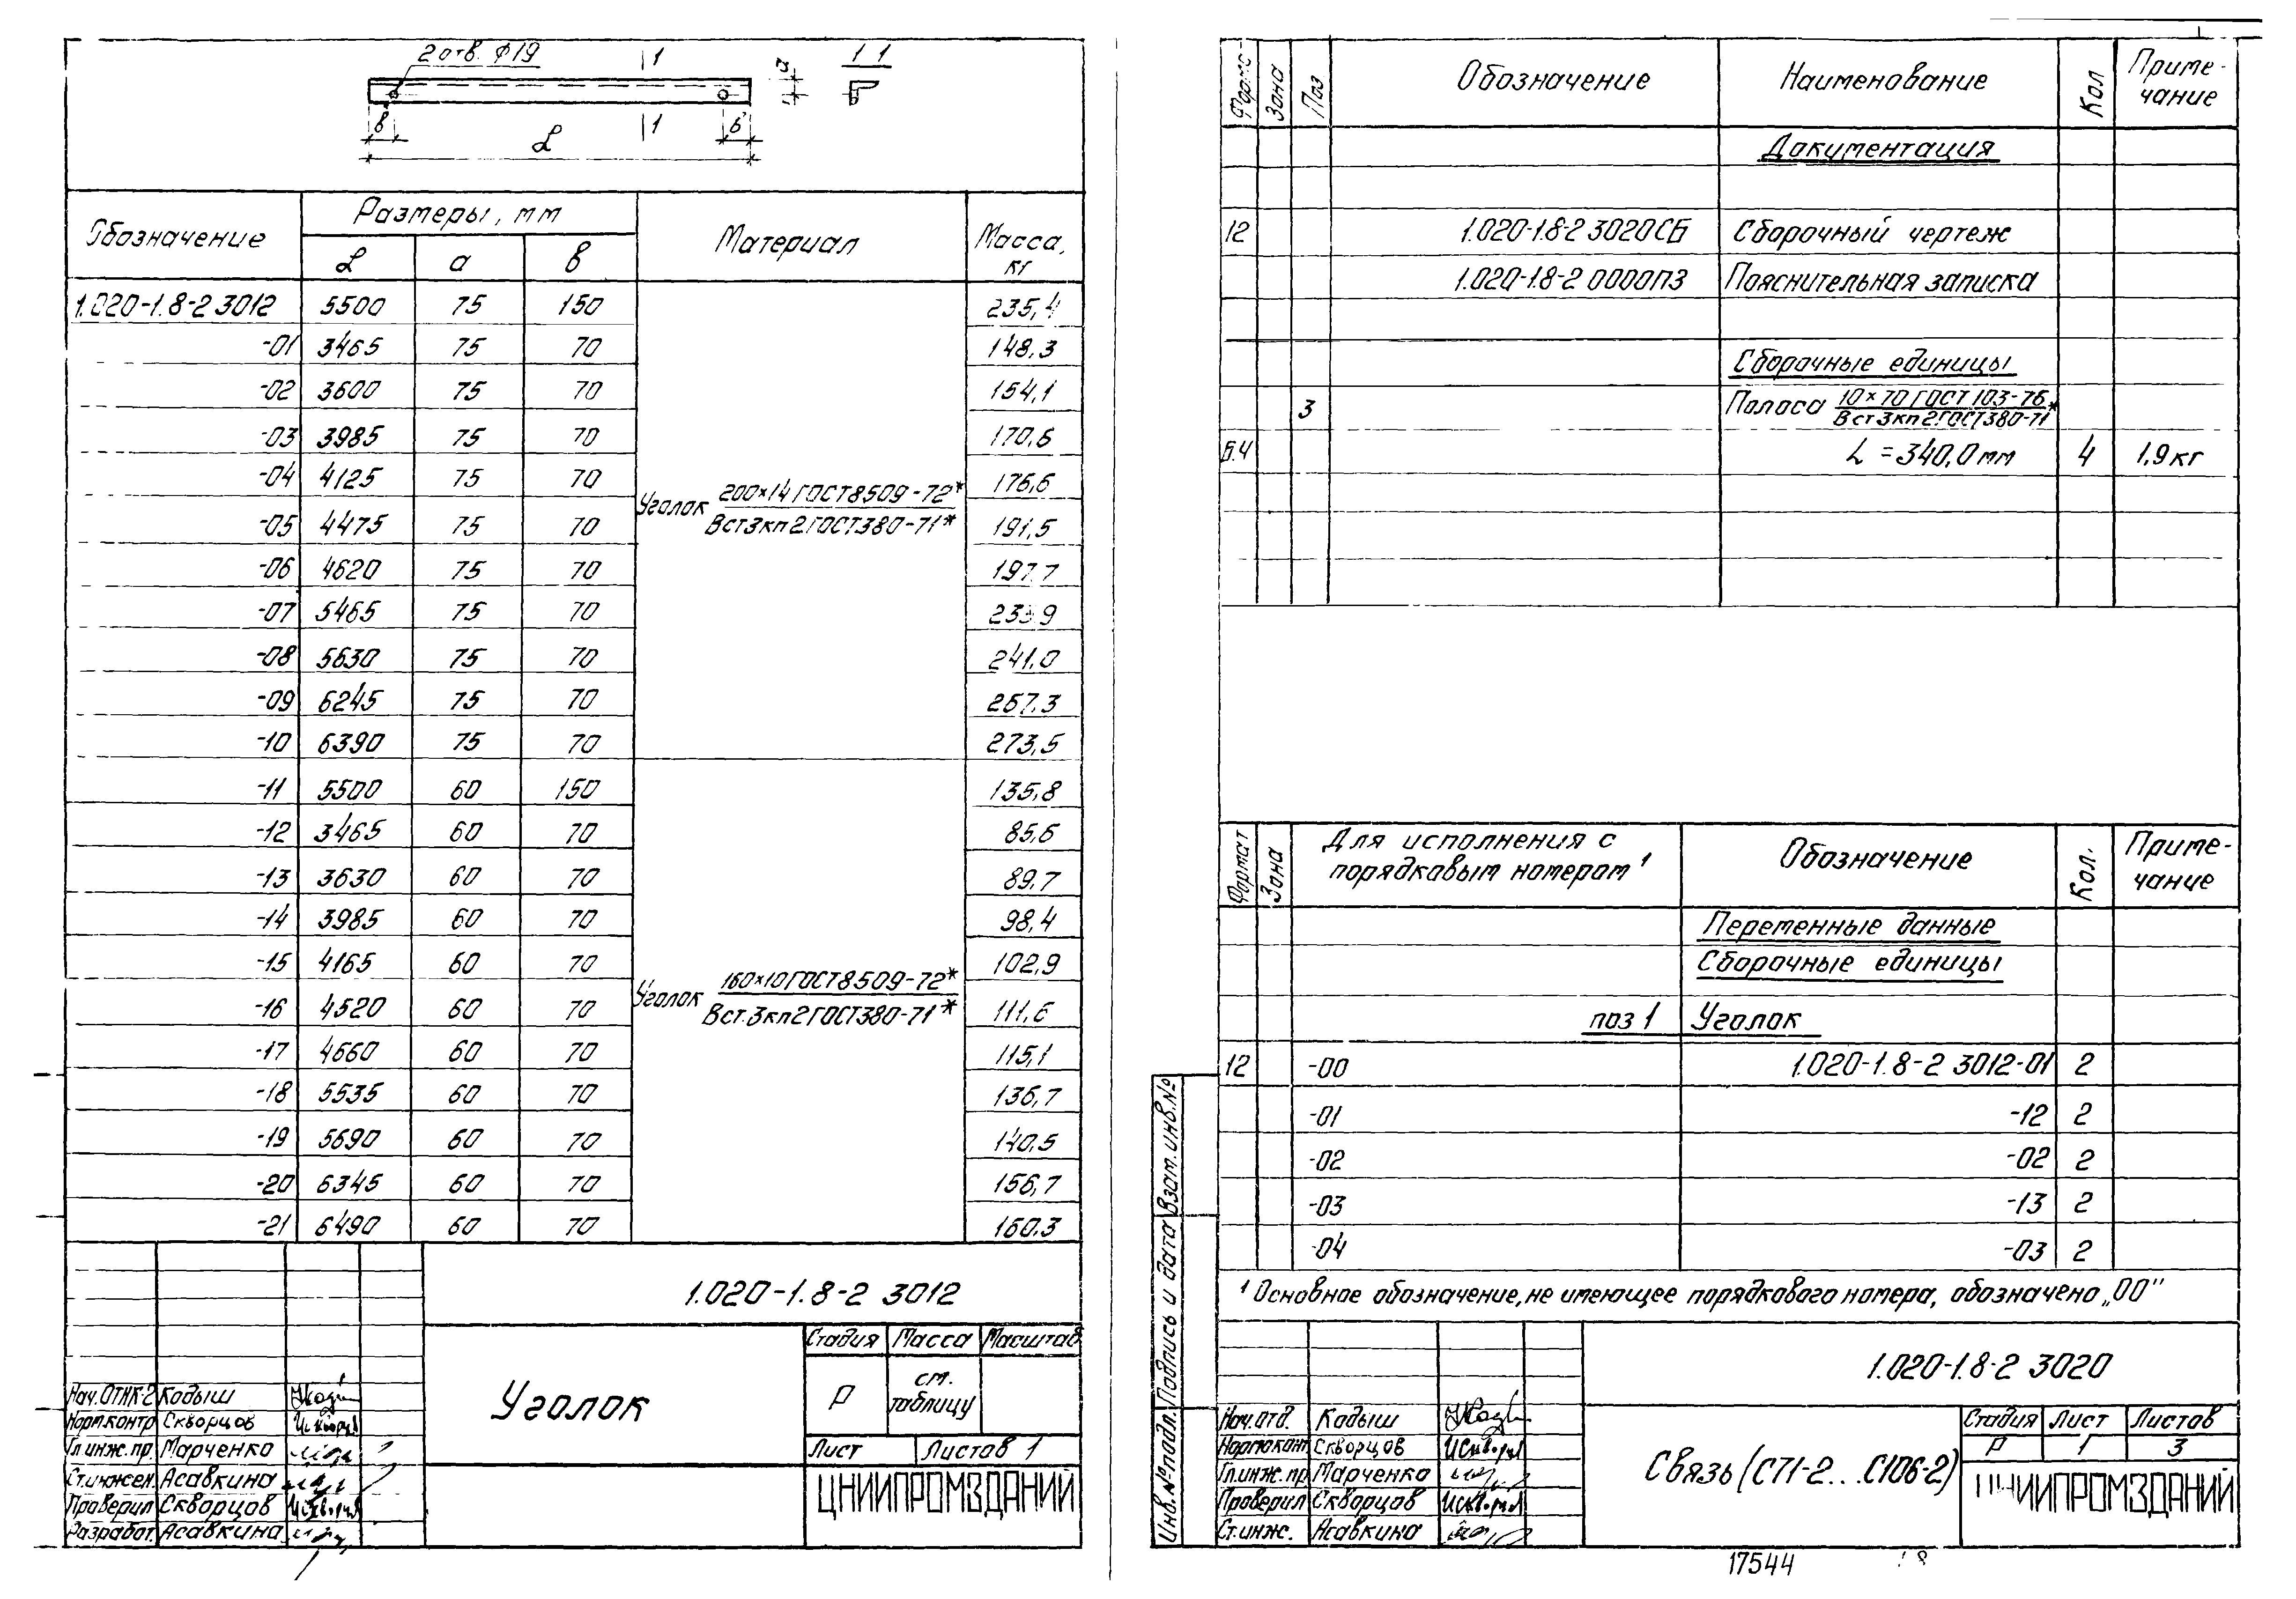 2 отв. Ф19
1
1 1
а
в
1
в
L
Обозначение
Размеры, мм
Материал
Масса, кг
L а в
1.020-1.8-2 3012 5500 75 150 235,4
-01 3465 75 70 148,3
-02 3600 75 70 154,1
-03 3985 75 70 170,6
-04 4125 75 70 176,6
Уголок 200×14 ГОСТ 8509-72*
Вст3кп2 ГОСТ 380-71*
-05 4475 75 70 191,5
-06 4620 75 70 197,7
-07 5465 75 70 233,9
-08 5630 75 70 241,0
-09 6245 75 70 267,3
-10 6390 75 70 273,5
-11 5500 60 150 135,8
-12 3465 60 70 85,6
-13 3630 60 70 89,7
-14 3985 60 70 98,4
-15 4165 60 70 102,9
Уголок 160×10 ГОСТ 8509-72*
Вст.3кп2 ГОСТ 380-71*
-16 4520 60 70 111,6
-17 4660 60 70 115,1
-18 5535 60 70 136,7
-19 5690 60 70 140,5
-20 6345 60 70 156,7
-21 6490 60 70 160,3
1.020-1.8-2 3012
Уголок
Стадия Масса Масштаб
Р см. таблицу
Лист Листов 1
ЦНИИПРОМЗДАНИЙ
Нач.ОТМК-2 Кодыш
Норм.контр Скворцов
Гл.инж.пр. Марченко
Ст.инжен. Асавкина
Проверил Скворцов
Разработ. Асавкина
Формат Зона Поз Обозначение Наименование Кол Приме-
чание
Документация
12 1.020-1.8-2 3020СБ Сборочный чертеж
1.020-1.8-2 0000ПЗ Пояснительная записка
Сборочные единицы
3 Полоса 10×70 ГОСТ 103-76*
Вст3кп2 ГОСТ 380-71
Б.Ч L = 340,0 мм 4 1,9 кг
Формат Зона Для исполнения с
порядковым номером 1
Обозначение Кол. Приме-
чание
Переменные данные
Сборочные единицы
поз 1 Уголок
12 -00 1.020-1.8-2 3012-01 2
-01 -12 2
-02 -02 2
-03 -13 2
-04 -03 2
1 Основное обозначение, не имеющее порядкового номера, обозначено „00"
1.020-1.8-2 3020
Связь (С71-2...С106-2)
Стадия Лист Листов
Р 1 3
ЦНИИПРОМЗДАНИЙ
Нач.отд. Кодыш
Норм.конт. Скворцов
Гл.инж.пр Марченко
Проверил Скворцов
Ст.инж. Асавкина
Инв.№ подл. Подпись и дата Взам.инв.№
17544